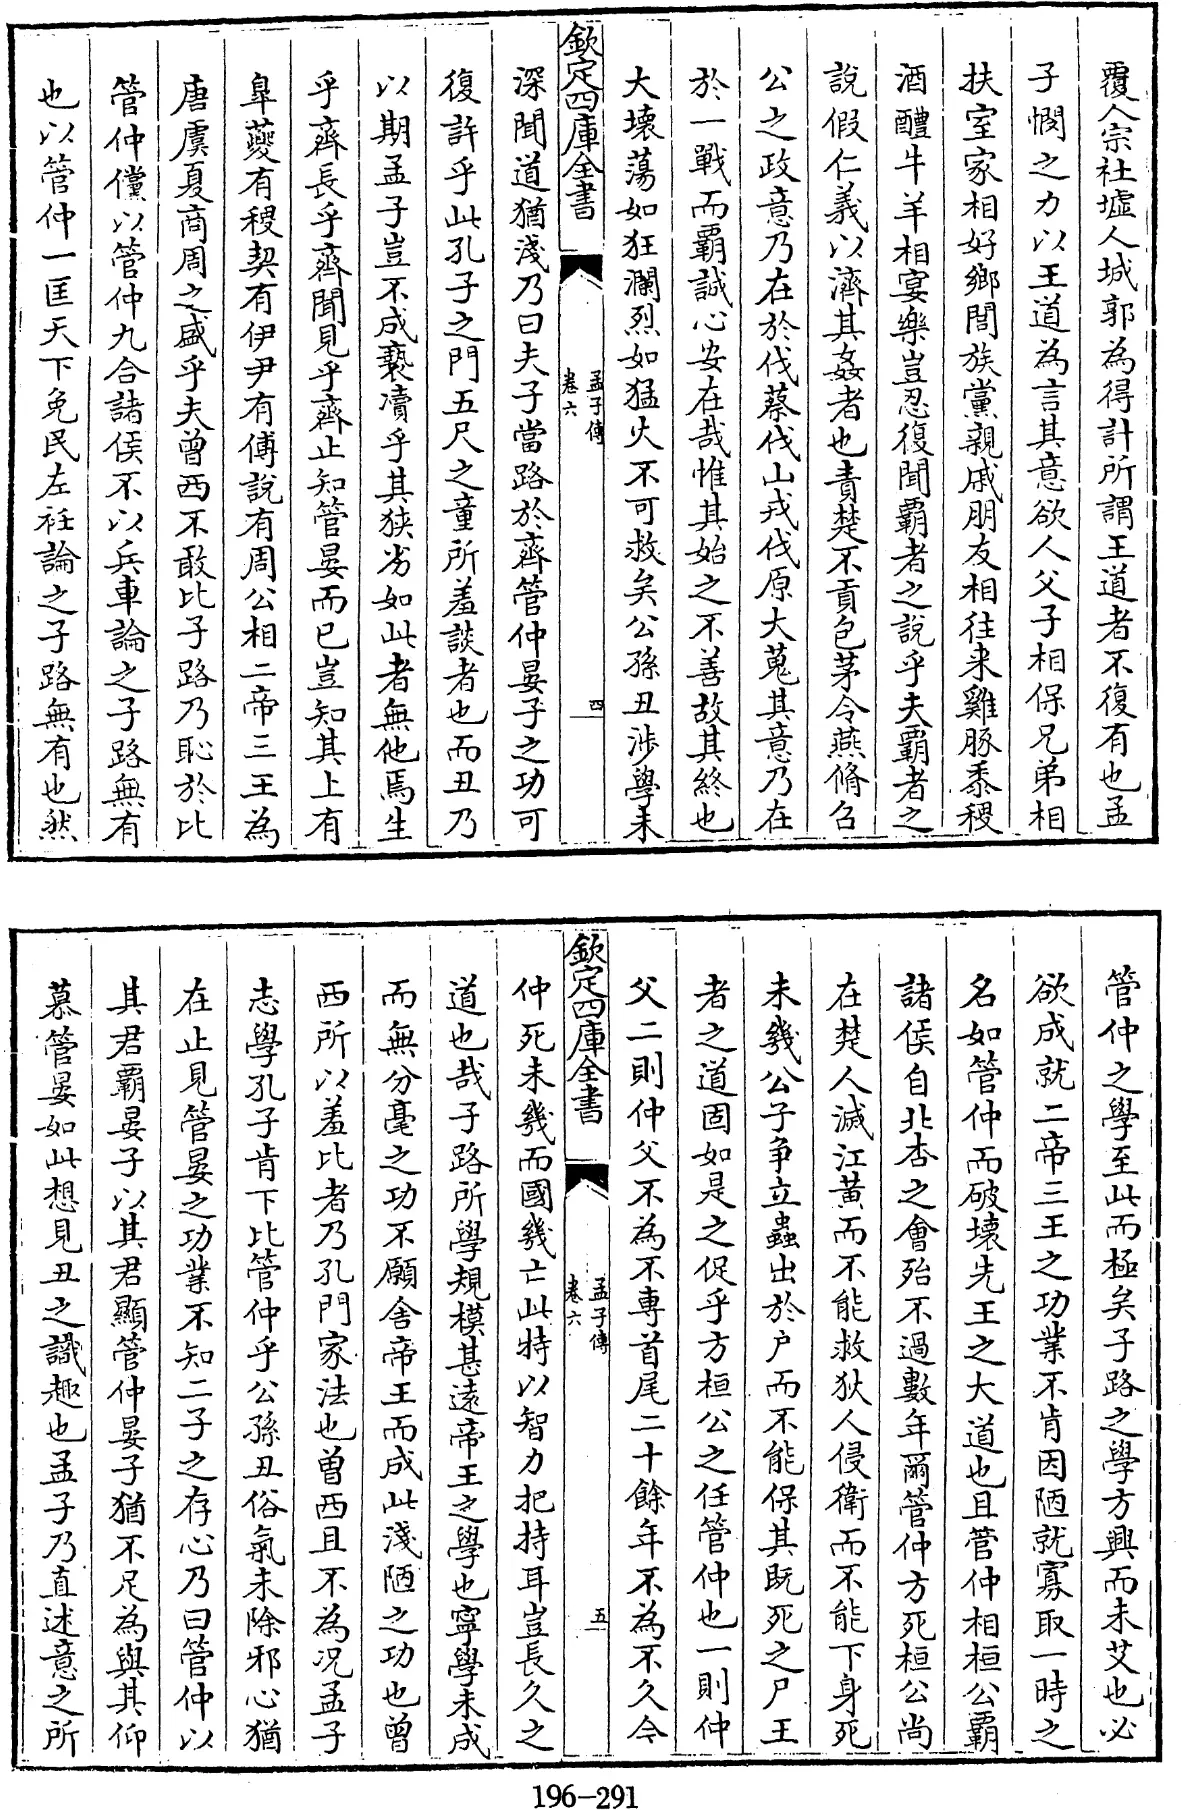 覆人宗社墟人城郭為得計所謂王道者不復有也孟
子憫之力以王道為言其意欲人父子相保兄弟相
扶室家相好鄉閭族黨親戚朋友相往来雞豚黍稷
酒醴牛羊相宴樂豈忍復聞霸者之説乎夫霸者之
說假仁義以濟其姦者也責楚不貢包茅令燕脩召
公之政意乃在於伐蔡伐山戎伐原大蒐其意乃在
於一戰而霸誠心安在哉惟其始之不善故其終也
大壞蕩如狂瀾烈如猛火不可救矣公孫丑涉學未
欽定四庫全書
孟子傳
卷六
四
深聞道猶淺乃曰夫子當路於齊管仲晏子之功可
復許乎此孔子之門五尺之童所羞談者也而丑乃
以期孟子豈不成褻瀆乎其狹劣如此者無他焉生
乎齊長乎齊聞見乎齊止知管晏而已豈知其上有
臯夔有稷契有伊尹有傅說有周公相二帝三王為
唐虞夏商周之盛乎夫曾西不敢比子路乃恥於比
管仲儻以管仲九合諸侯不以兵車論之子路無有
也以管仲一匡天下免民左衽論之子路無有也然
管仲之學至此而極矣子路之學方興而未艾也必
欲成就二帝三王之功業不肯因陋就寡取一時之
名如管仲而破壞先王之大道也且管仲相桓公霸
諸侯自北杏之會殆不過數年爾管仲方死桓公尚
在楚人滅江黃而不能救狄人侵衛而不能下身死
未幾公子争立蟲出於户而不能保其既死之尸王
者之道固如是之促乎方桓公之任管仲也一則仲
父二則仲父不為不專首尾二十餘年不為不久今
欽定四庫全書
孟子傳
卷六
五
仲死未幾而國幾亡此特以智力把持耳豈長久之
道也哉子路所學規模甚遠帝王之學也寧學未成
而無分毫之功不願舍帝王而成此淺陋之功也曾
西所以羞比者乃孔門家法也曾西且不為况孟子
志學孔子肯下比管仲乎公孫丑俗氣未除邪心猶
在止見管晏之功業不知二子之存心乃曰管仲以
其君霸晏子以其君顯管仲晏子猶不足為與其仰
慕管晏如此想見丑之識趣也孟子乃直述意之所
196-291